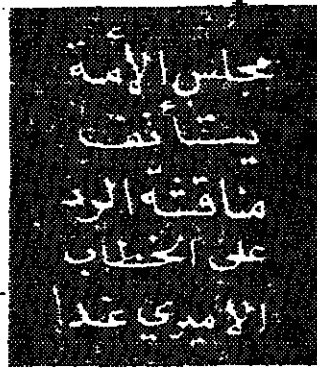 مجلس الأمة
يستأنف
مناقشة الرد
على الخطاب
الأميري غدا